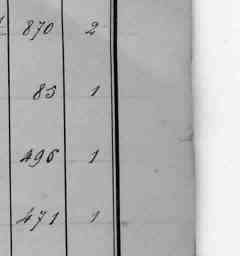 870 2
85 1
496 1
471 1